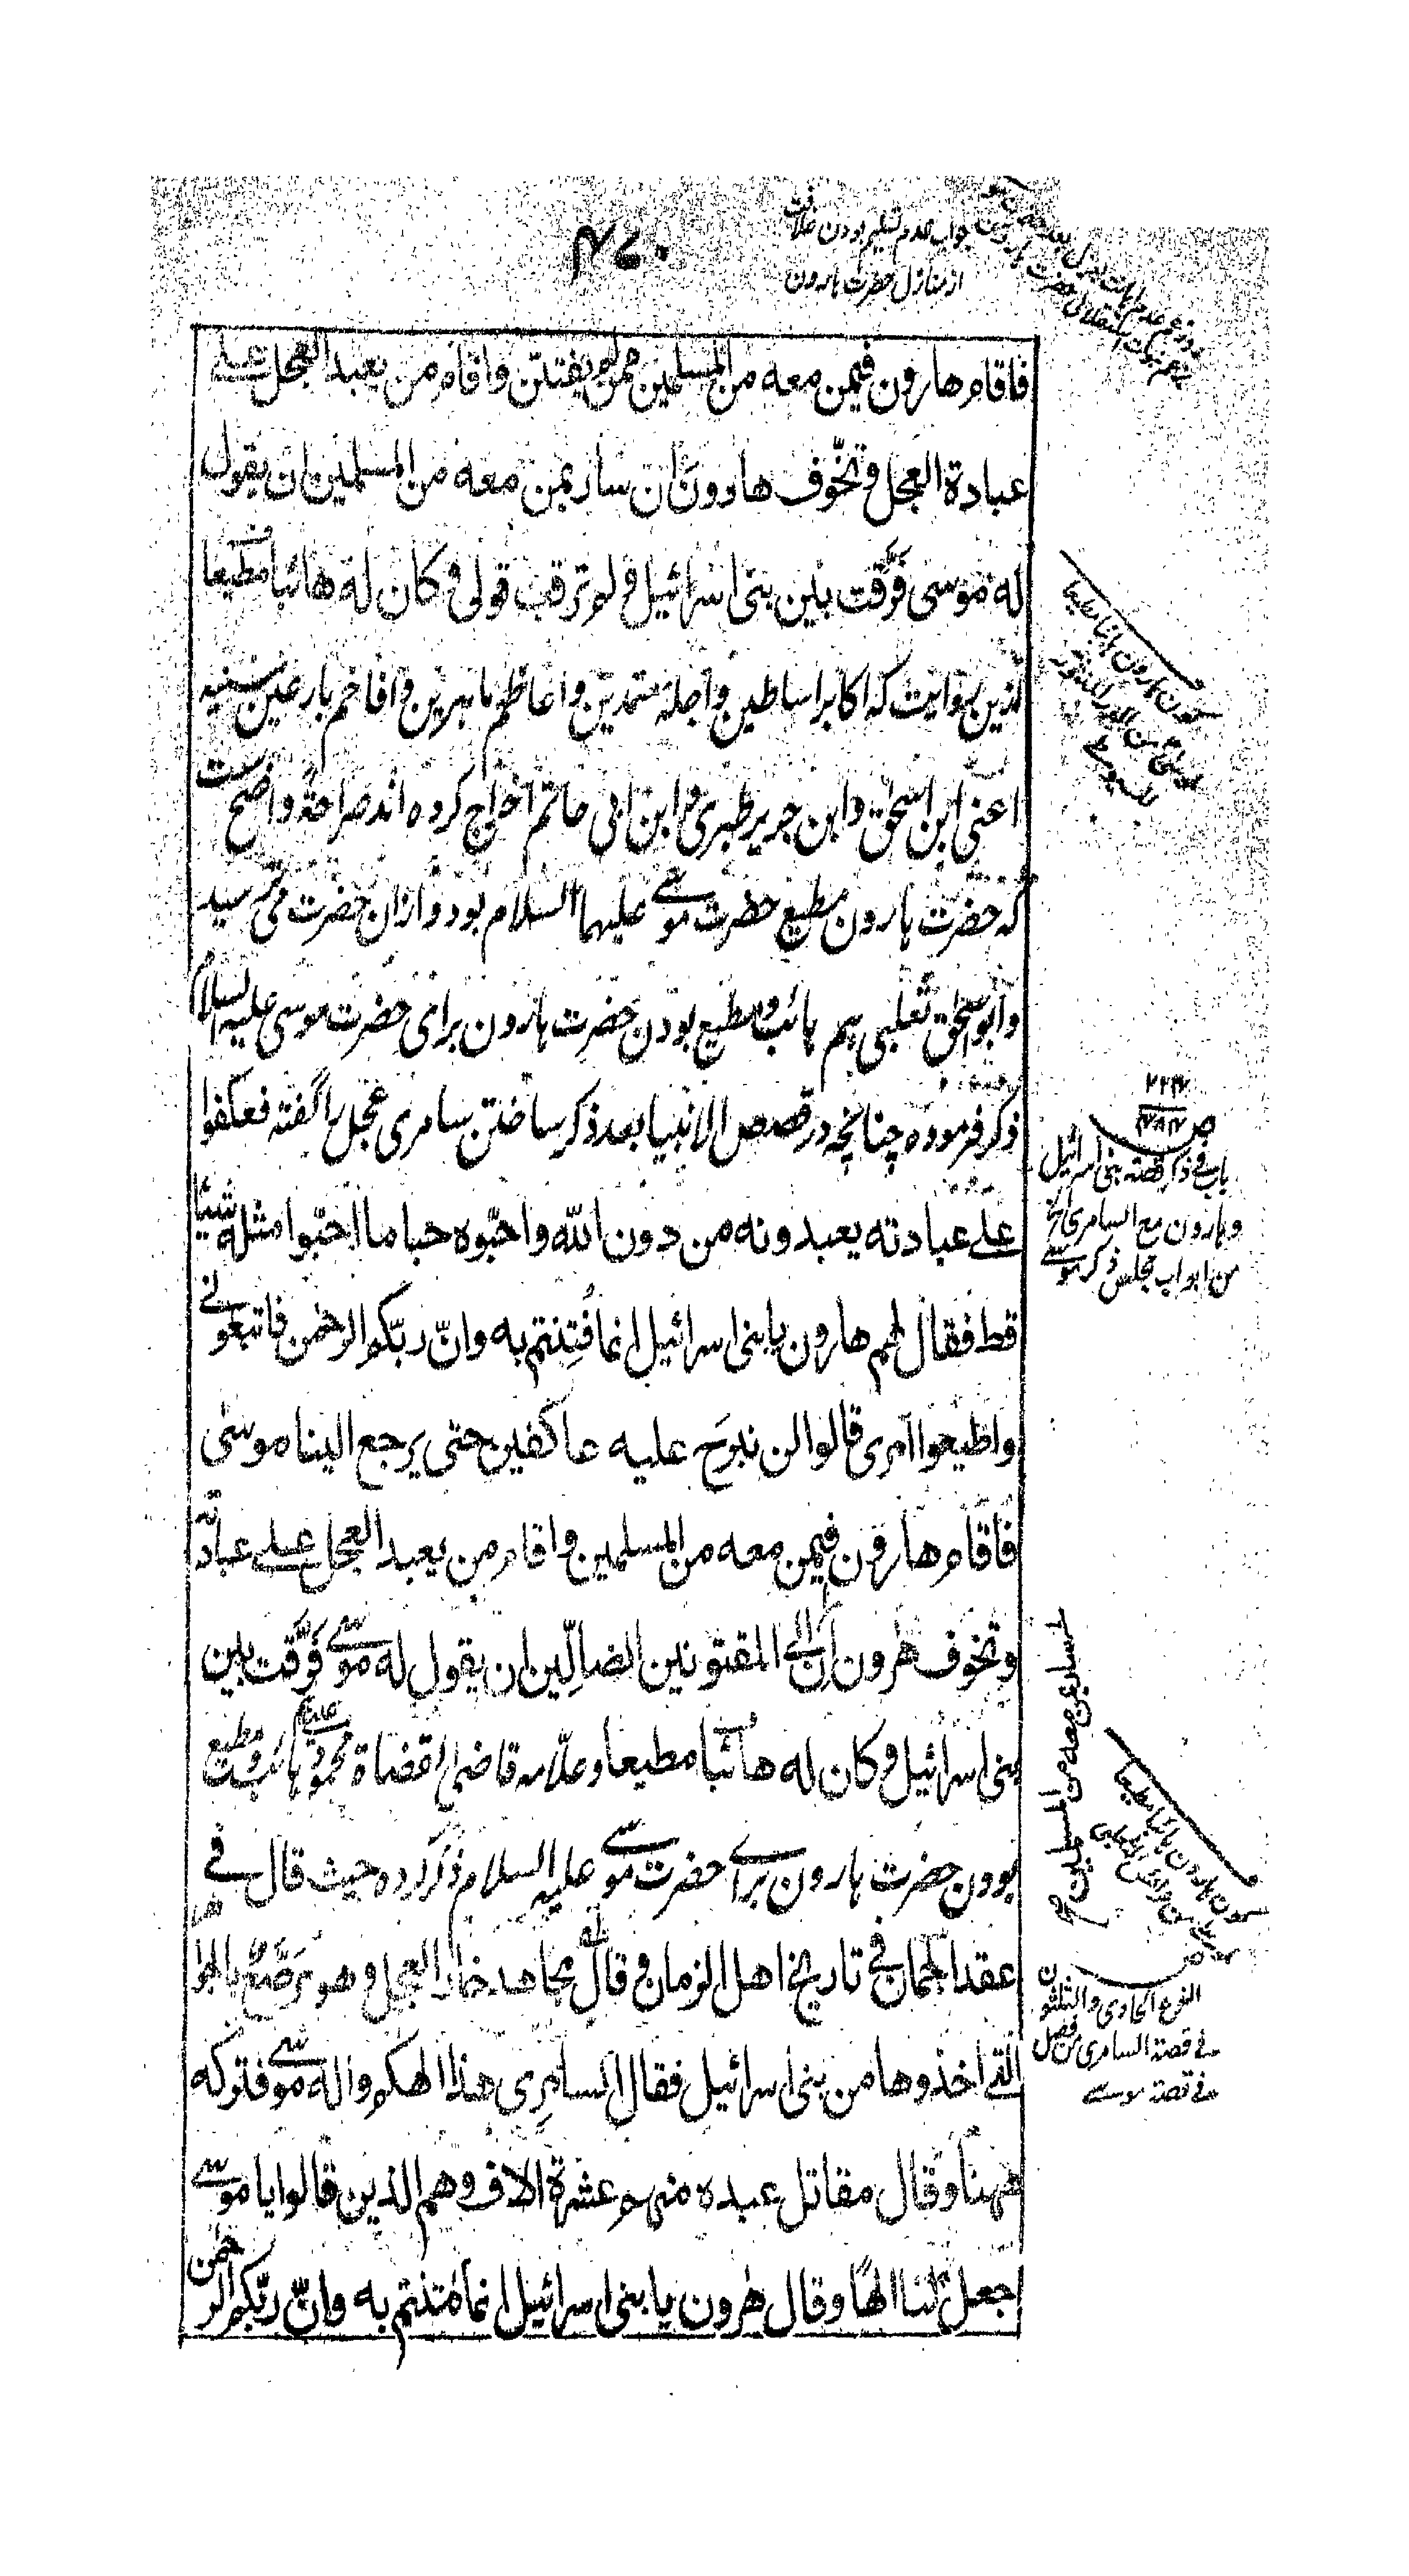 ۴۷۰
جواب عدم تسلیم بودن خلافت
از منازل حضرت هارون
فاقام هارون فیمن معه من المسلمین ممن لم یفتتن واقام من یعبد العجل علی
عبادة العجل وتخوّف هارون ان سار بمن معه من المسلمین ان یقول
له موسی فرّقت بین بنی اسرائیل ولم ترقب قولی وکان له هائبا مطیعا
ازین روایت که اکابر اساطین واجلهٔ معتمدین واعاظم ماهرین وافاخم بارعین سنیه
اعنی ابن اسحٰق وابن جریر طبری وابن ابی حاتم اخراج کرده اند صراحةً واضح ست
که حضرت هارون مطیع حضرت موسی علیهما السلام بود وازان حضرت می ترسید
وابو اسحٰق ثعلبی هم هائب ومطیع بودن حضرت هارون برای حضرت موسی علیه السلام
ذکر فرموده چنانچه در قصص الانبیا بعد ذکر ساختن سامری عجل را گفته فعکفوا
علی عبادته یعبدونه من دون الله واحبّوه حبا ما احبّوا مثله شیئا
قط فقال لهم هارون یا بنی اسرائیل انما فُتِنتم به وانّ ربّکم الرحمٰن فاتبعونی
واطیعوا امری قالوا لن نبرَح علیه عاکفین حتی یرجع الینا موسٰی
فاقام هارون فیمن معه من المسلمین واقام من یعبد العجل علی عبادته
وتخوف هٰرون ان المفتونین الضالّین ان یقول له موسی فرّقت بین
بنی اسرائیل وکان له هائبا مطیعا وعلّامه قاضی القضاة محمود عینی هائب ومطیع
بودن حضرت هارون برای حضرت موسی علیه السلام ذکر کرده حیث قال فی
عقد الجمان فی تاریخ اهل الزمان وقال مجاهد خار العجل وهو مرصّع بالجواهر
التی اخذوها من بنی اسرائیل فقال السامری هذا الهکم واله موسی فترکه
ههنا وقال مقاتل عبده منهم عشرة الاف وهم الذین قالوا یا موسی
اجعل لنا الٰهًا وقال هٰرون یا بنی اسرائیل انما فتنتم به وانّ ربّکم الرحمٰن
باب فی ذکر قصة بنی اسرائیل
وهارون مع السامری الخ
من ابواب مجلس ذکر موسی
سار بمن معه من المسلمین
الفرع الحادی والثلثون
فی قصة السامری من فصل
فی قصة موسی